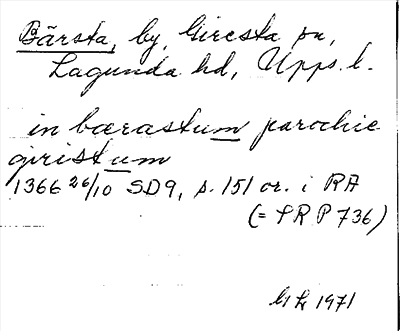 Bärsta, by, Giresta sn,
Lagunda hd, Upps. l.
in bærastum parochie
giristum
1366 26/10 SD9, s. 151 or. i RA
(= SRP 736)
1971